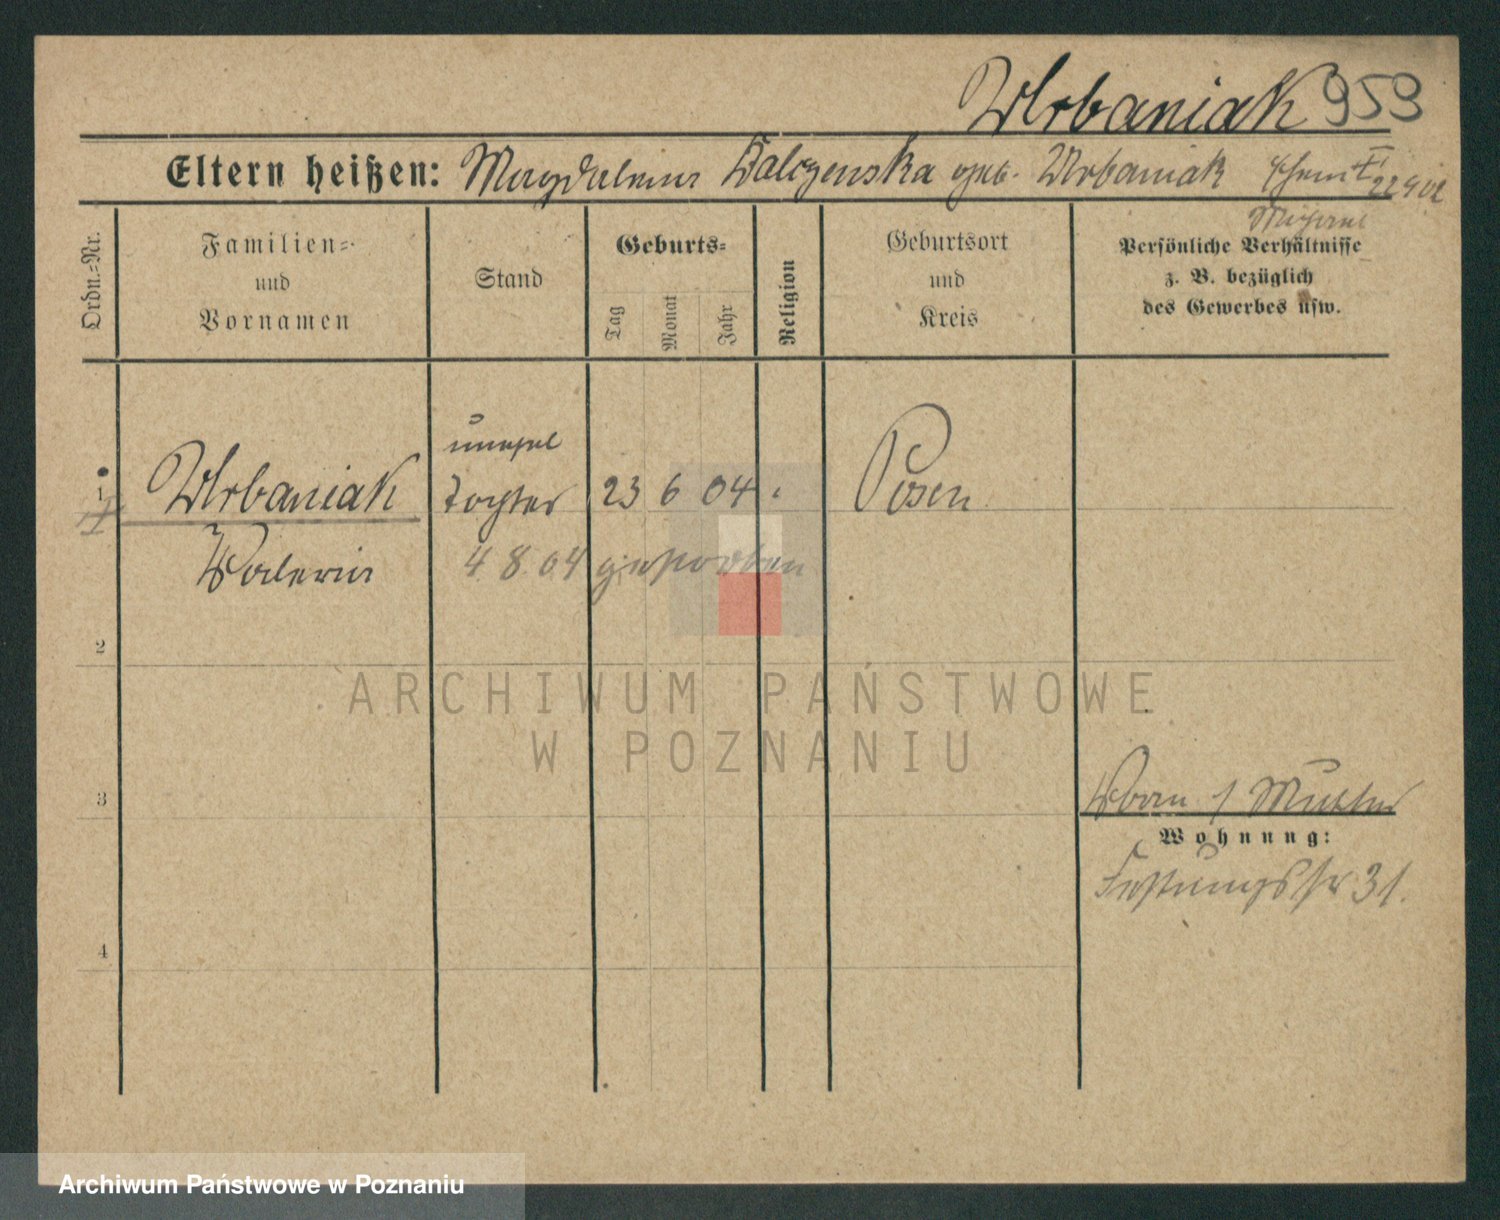 Urbaniak 959
Eltern heißen: Magdalena Walczenska geb. Urbaniak
22 9 02
Ordn.=Nr.
Familien=
und
Vornamen
Stand
Geburts=
Tag
Monat
Jahr
Religion
Geburtsort
und
Kreis
Persönliche Verhältnisse
z. B. bezüglich
des Gewerbes usw.
unehel
1 Urbaniak Tochter 23 6 04 Posen
Waleria 4. 8. 04 gestorben
2
ARCHIWUM PAŃSTWOWE
W POZNANIU
3
Mutter
Wohnung:
Festungsstr 31.
4
Archiwum Państwowe w Poznaniu